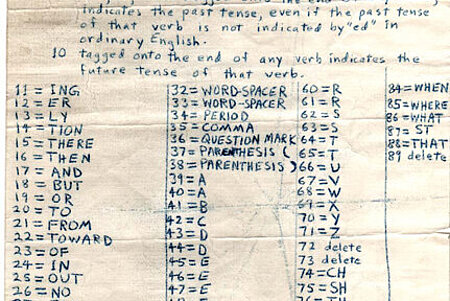 indicates the past tense, even if the past tense
of that verb is not indicated by "ed" in
ordinary English.
10 tagged onto the end of any verb indicates the
future tense of that verb.
11 = ING
12 = ER
13 = LY
14 = TION
15 = THERE
16 = THEN
17 = AND
18 = BUT
19 = OR
20 = TO
21 = FROM
22 = TOWARD
23 = OF
24 = IN
25 = OUT
26 = NO
32 = WORD-SPACER
33 = WORD-SPACER
34 = PERIOD
35 = COMMA
36 = QUESTION MARK
37 = PARENTHESIS (
38 = PARENTHESIS )
39 = A
40 = A
41 = B
42 = C
43 = D
44 = D
45 = E
46 = E
47 = E
60 = R
61 = R
62 = S
63 = S
64 = T
65 = T
66 = U
67 = V
68 = W
69 = X
70 = Y
71 = Z
72 delete
73 delete
74 = CH
75 = SH
84 = WHEN
85 = WHERE
86 = WHAT
87 = ST
88 = THAT
89 delete